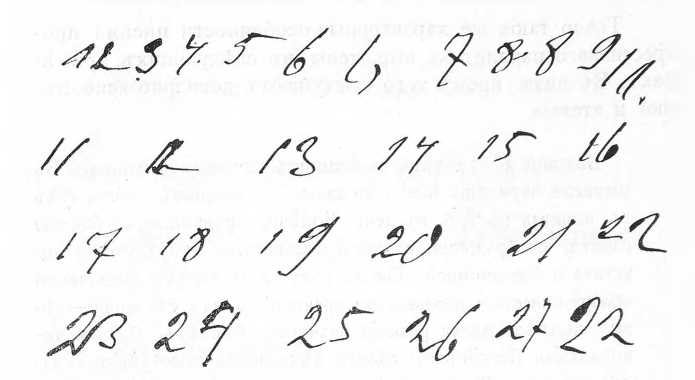 12 3 4 5 6 6, 7 8, 8 9 11.
11 12 13 14 15 16
17 18 19 20 21 22
23 24 25 26 27 22